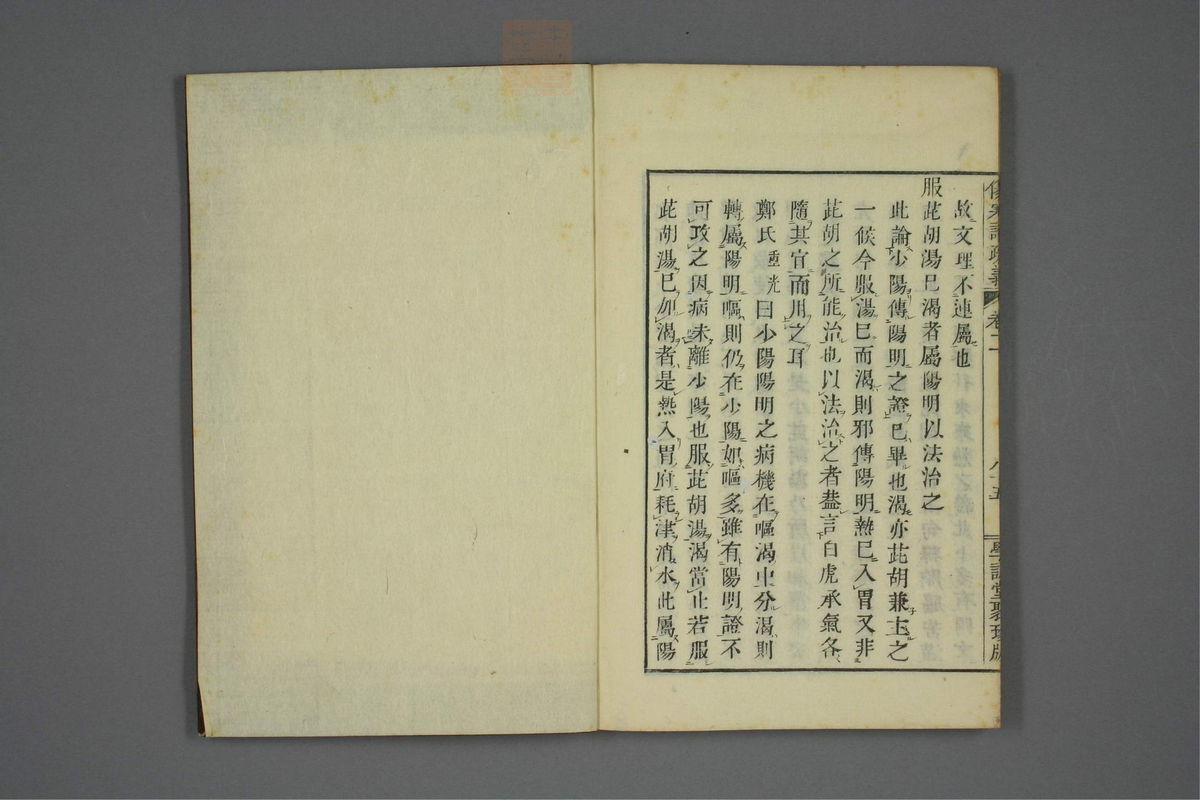 故文理不連屬也
服茈胡湯已渴者屬陽明以法治之
此論少陽傳陽明之證已畢也渴亦茈胡兼主之
一候今服湯已而渴則邪傳陽明熱已入胃又非
茈胡之所能治也以法治之者葢言白虎承氣各
隨其宜而用之耳
鄭氏重光曰少陽陽明之病機在嘔渴中分渴則
轉屬陽明嘔則仍在少陽如嘔多雖有陽明證不
可攻之因病未離少陽也服茈胡湯渴當止若服
茈胡湯已加渴者是熱入胃府耗津消水此屬陽
傷寒論疏義 卷二 八十五 學訓堂聚珍版